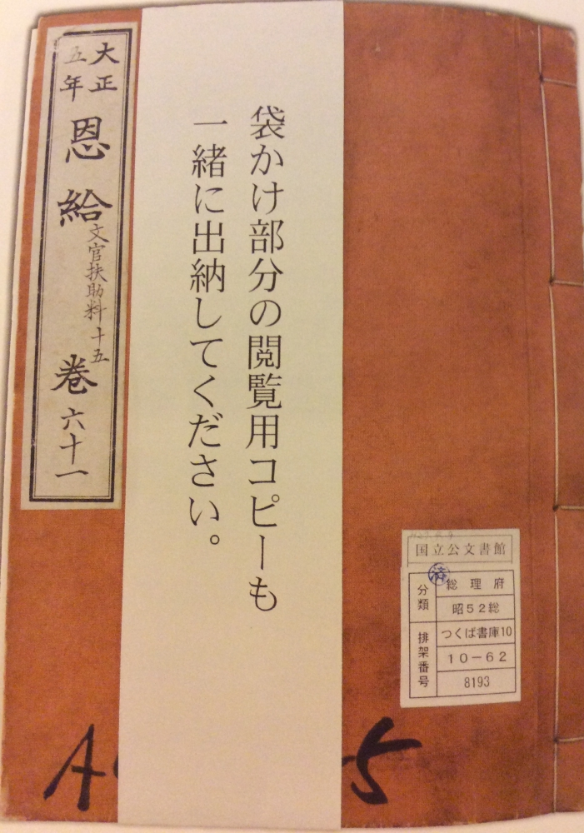 大正
五年
恩給
文官扶助料十五
巻六十一
袋かけ部分の閲覧用コピーも
一緒に出納してください。
国立公文書館
済
分類
総理府
昭52総
排架番号
つくば書庫10
10-62
8193
A
5